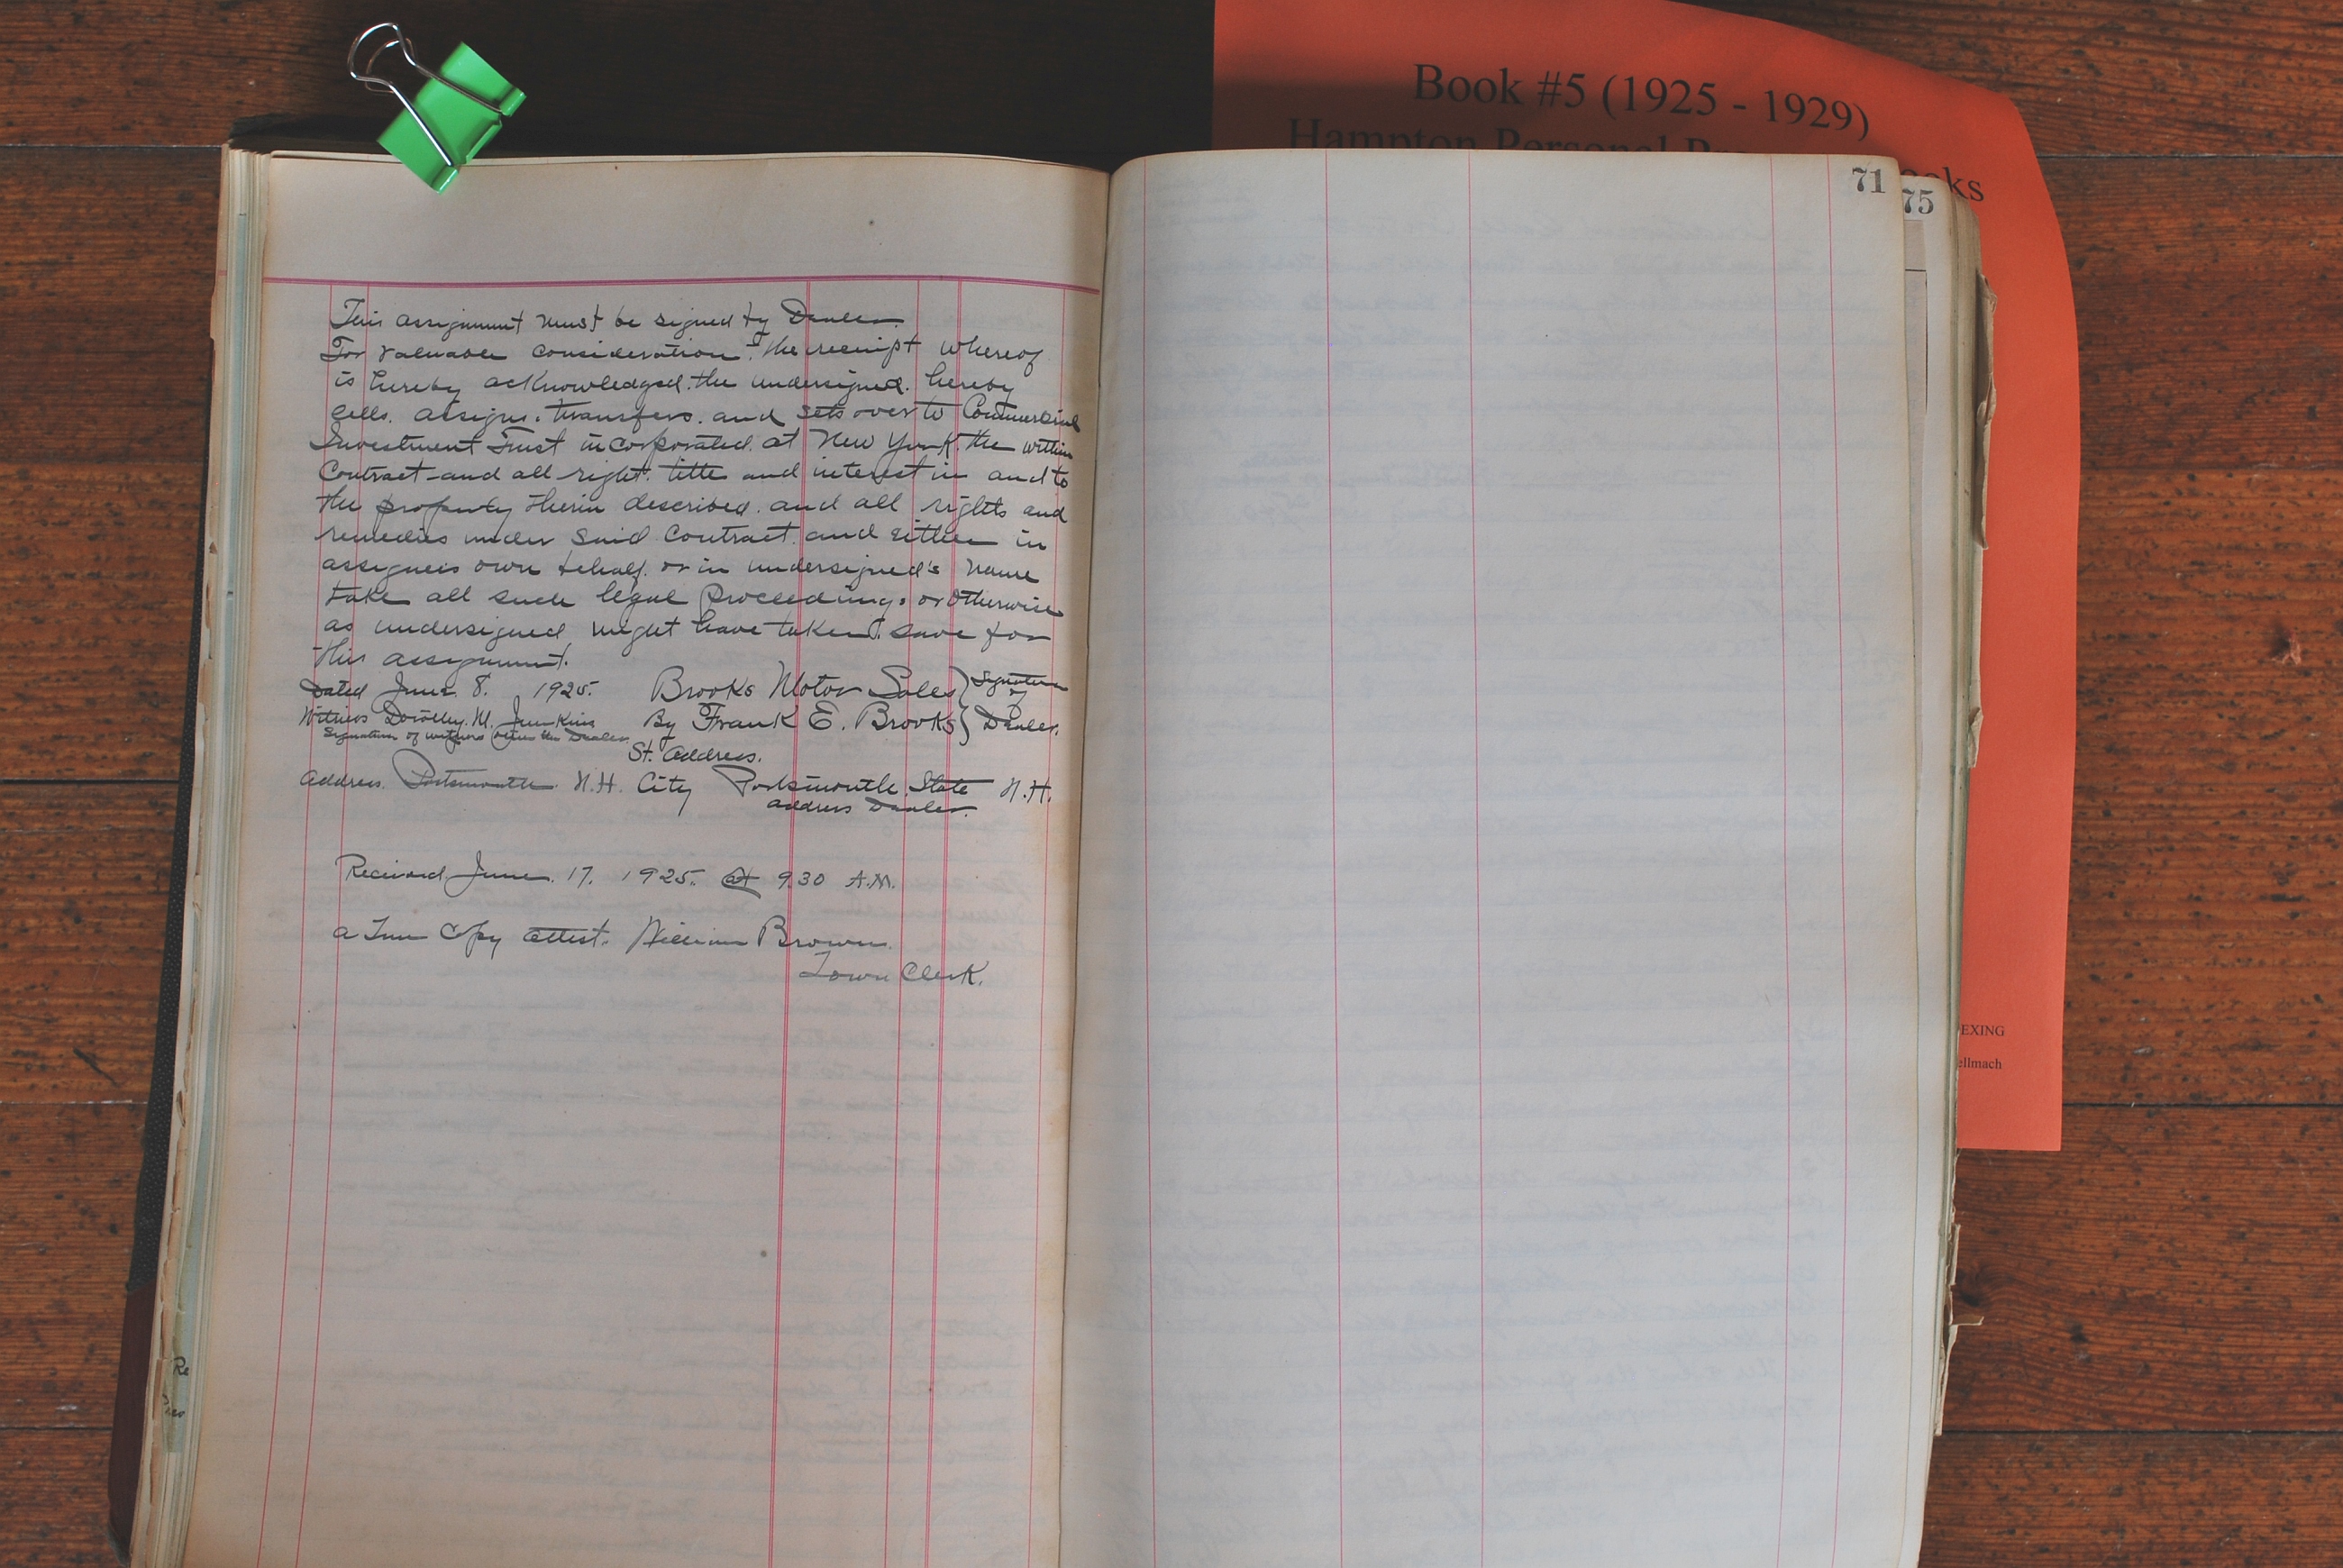 Book #5 (1925 - 1929)
Hampton Personal
71
75
This assignment must be signed by Dealer.
For valuable consideration. the receipt whereof
is hereby acknowledged. the undersigned. hereby
sells. assigns. transfers. and sets over to Commercial
Investment Trust incorporated. at New York. the within
Contract and all right. title and interest in and to
the property therin described. and all rights and
remedies under said Contract. and either in
assignees own behalf. or in undersigned's name
take all such legal proceedings or otherwise
as undersigned might have taken. save for
this assignment.
Dated June 8. 1925. Brooks Motor Sales } Signature of
Witness Dorothy. M. Junkins By Frank E. Brooks } Dealer.
Signature of witness the Dealer
St. Address.
Address. Portsmouth. N.H. City Portsmouth. State N.H.
Address Dealer.
Received June. 17. 1925. at 9.30 A.M.
a True Copy attest. William Brown.
Town Clerk.
EXING
ellmach